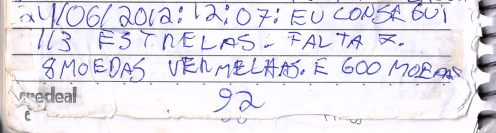 24/06/2012: 12:07: EU CONSEGUI
113 ESTRELAS. FALTA 7.
8 MOEDAS VERMELHAS. E 600 MOEDAS
credeal
92